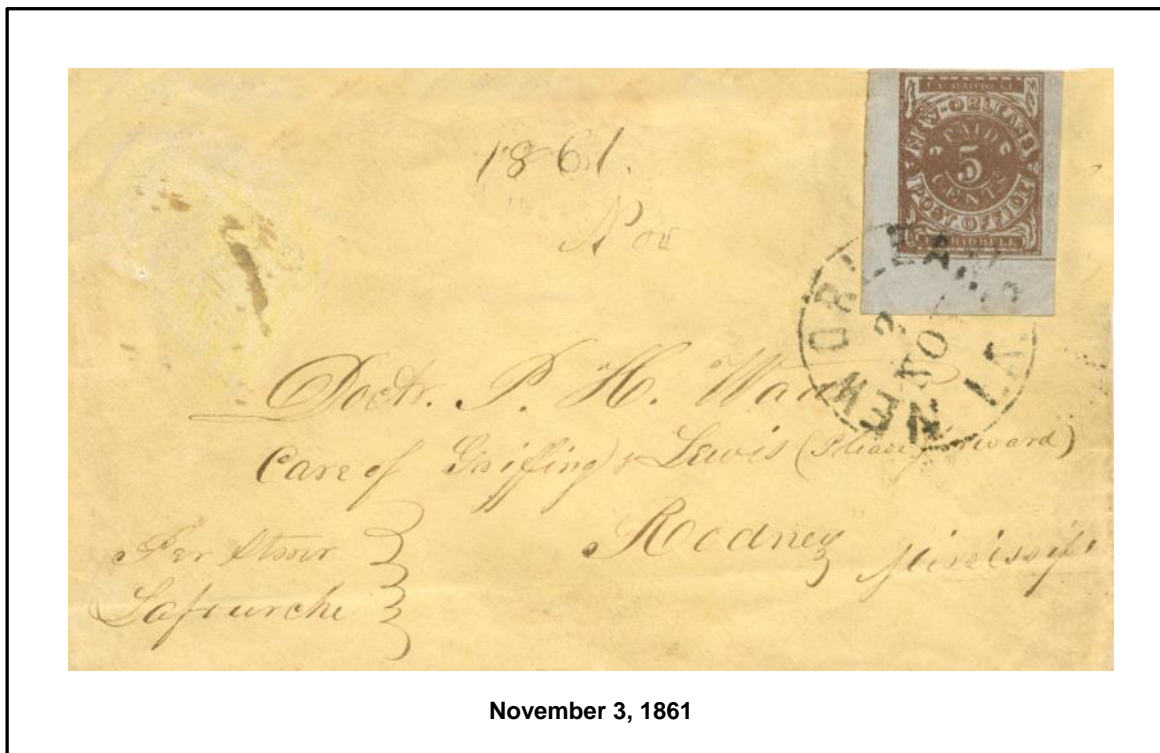 1861.
Nov
PAID
5
CENTS
POST OFFICE
J.L. RIDDELL
NEW ORLEANS
LA.
NOV
Doctr. P. H.
Care of Griffing & Lewis (Please forward)
Rodney Mississippi
Per Stmr
Lafourche
November 3, 1861